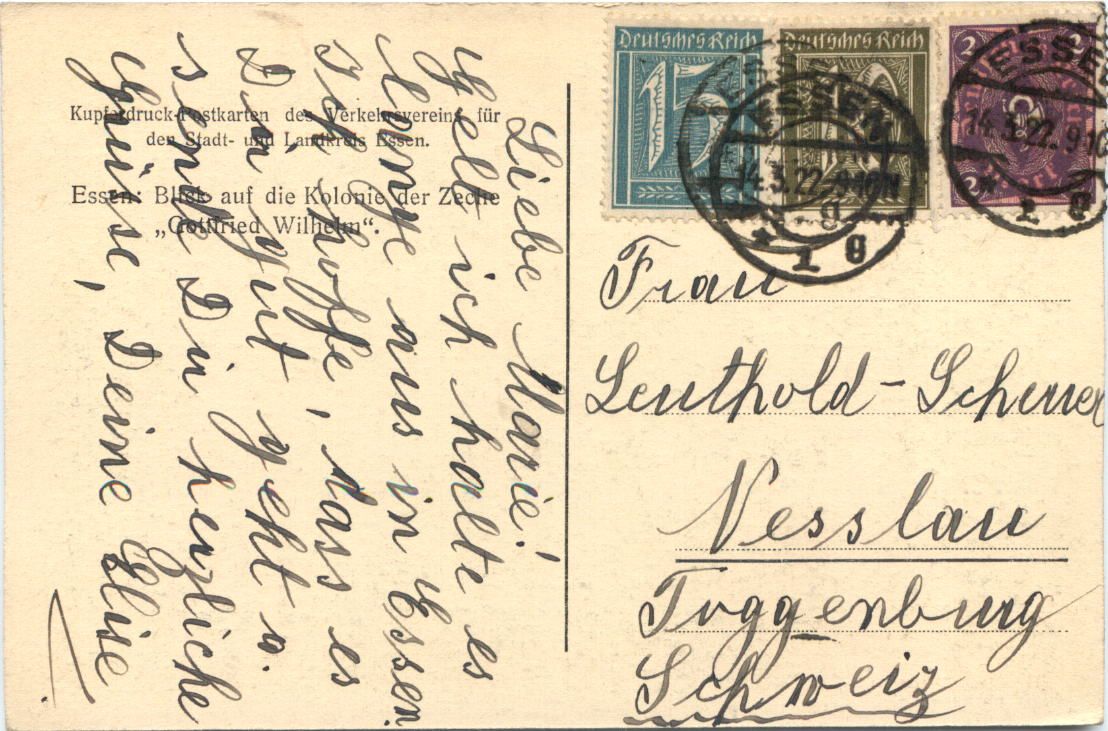 Kupferdruck-Postkarten des Verkehrsvereins für
den Stadt- und Landkreis Essen.
Essen: Blick auf die Kolonie der Zeche
„Gottfried Wilhelm“.
Liebe Marie!
Gelt ich halte es
lange aus in Essen.
Ich hoffe, dass es
Dir gut geht u.
sende Dir herzliche
Grüsse, Deine Elise
Deutsches Reich
15
Deutsches Reich
10
2
2
2
ESSEN
14.3.22. 9-10
* 1 g
ESSEN
14.3.22. 9-10
* 1 g
Frau
Leuthold-Scherrer
Nesslau
Toggenburg
Schweiz